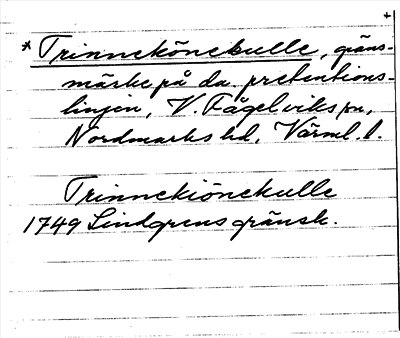 +
* Trinnekönekulle, gräns-
märke på da. pretentions-
linjen, V. Fågelviks sn,
Nordmarks hd, Värml. l.
Trinnekiönekulle
1749 Lindgrens gränsk.